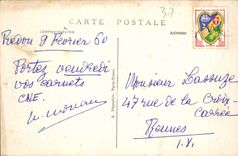 32
CARTE POSTALE
CORRESPONDANCE
Adresse
Redon 9 Février 60
Portez vendredi
vos carnets
CNE.
Monsieur
47 rue de la Croix-
Carrée
Rennes
I.V.